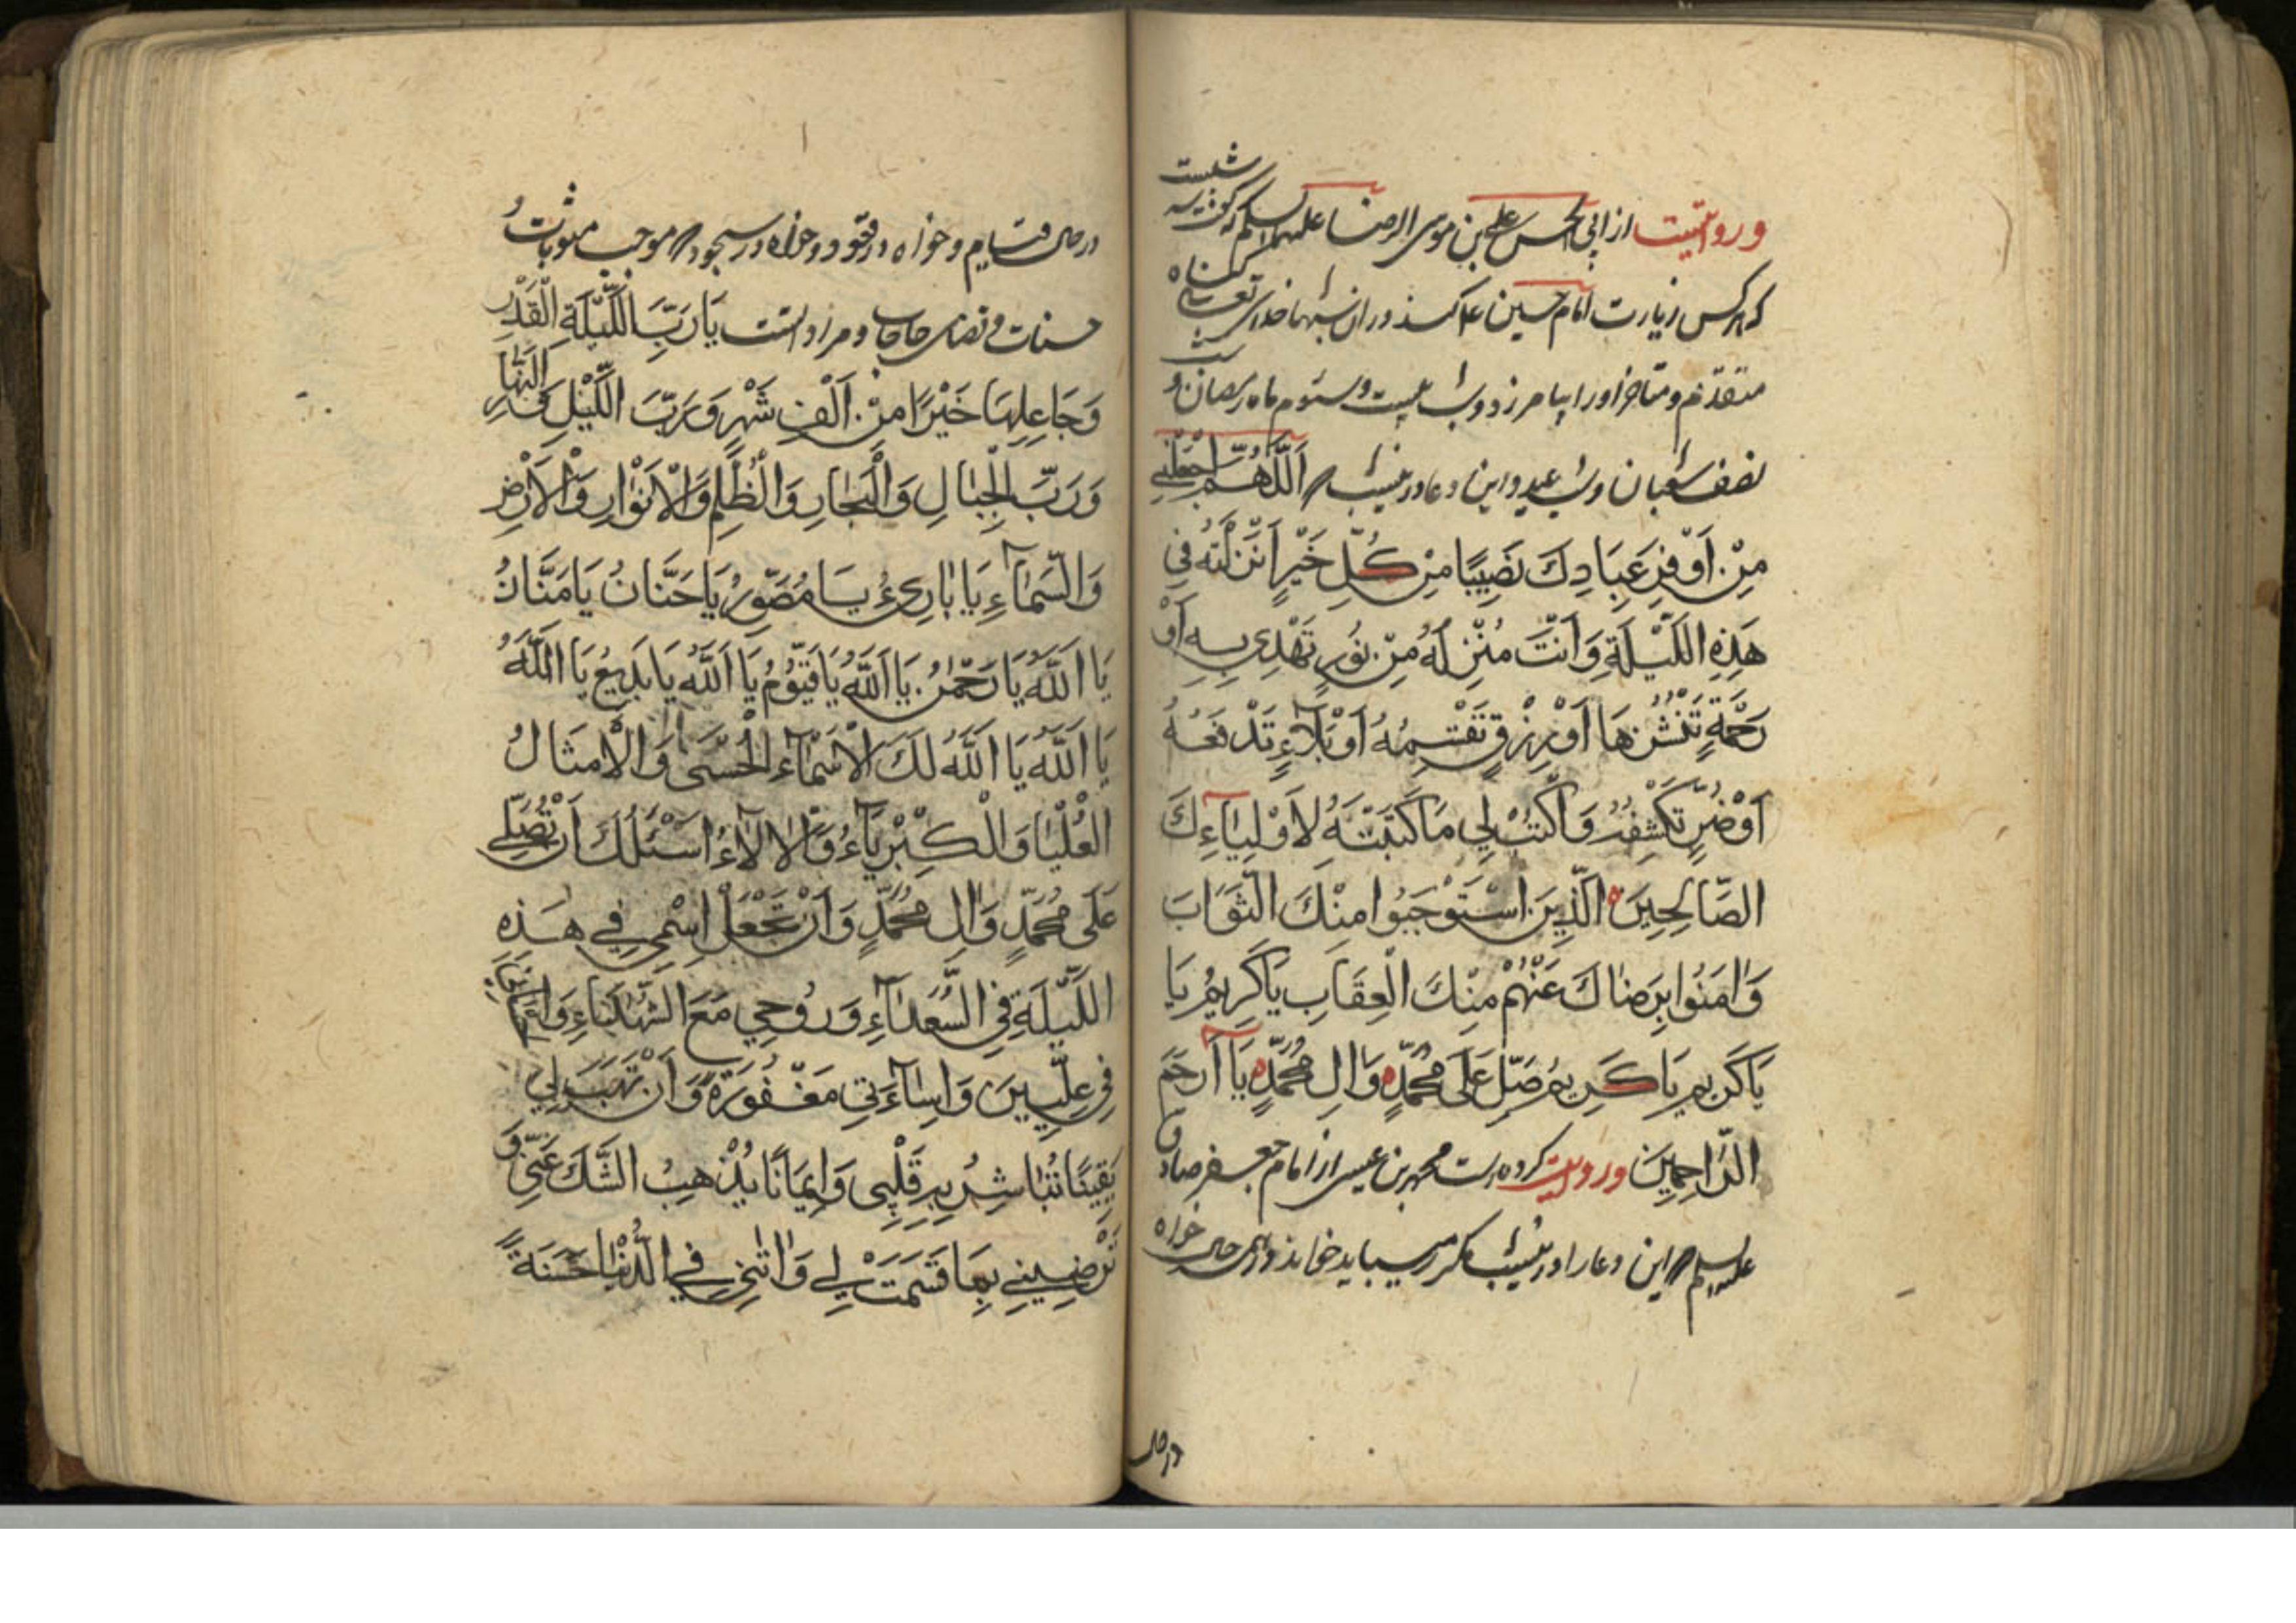 و روایتست از ابی الحسن علی بن موسی الرضا علیهما السلم که گفت سه شبست
که هر کس زیارت امام حسین ع کند در ان شبها خدای تعالی گناه
متقدم و متاخر او را بیامرزد و شب بیست و سئوم ماه رمضان و شب
نصف شعبان و شب عید و این دعا در ینشب اَللّٰهُمَّ اجْعَلْنِي
مِنْ اَوْفَرِ عِبَادِكَ نَصِيبًا مِنْ كُلِّ خَيْرٍ اَنْزَلْتَهُ فِي
هَذِهِ اللَّيْلَةِ وَاَنْتَ مُنْزِلُهُ مِنْ نُورٍ تَهْدِي بِهِ اَوْ
رَحْمَةٍ تَنْشُرُهَا اَوْ رِزْقٍ تَقْسِمُهُ اَوْ بَلَآءٍ تَدْفَعُهُ
اَوْ ضُرٍّ تَكْشِفُهُ وَاكْتُبْ لِي مَا كَتَبْتَهُ لِاَوْلِيَآءِكَ
الصَّالِحِينَ الَّذِينَ اسْتَوْجَبُوا مِنْكَ الثَّوَابَ
وَاٰمَنُوا بِرِضَاكَ عَنْهُمْ مِنْكَ الْعِقَابِ يَا كَرِيمُ يَا
يَا كَرِيم يَا كَرِيمُ صَلِّ عَلَى مُحَمَّدٍ وَاٰلِ مُحَمَّدٍ يَا اَرْحَمَ
الرَّاحِمِينَ و روایت کرده است محمد بن عیسی از امام جعفر صادق
علیه السلم این دعا را در ینشب مکرر میباید خواند در همه حال خواه
در حال
در حال قیام و خواه در قعود و خواه در سجود موجب مثوبات
حسنات و قضای حاجات و مراد است يَا رَبَّ اللَّيْلَةِ الْقَدْرِ
وَجَاعِلِهَا خَيْرًا مِنْ اَلْفِ شَهْرٍ وَرَبَّ اللَّيْلِ وَالنَّهَارِ
وَرَبَّ الْجِبَالِ وَالْبِحَارِ وَالظُّلَمِ وَالْاَنْوَارِ وَالْاَرْضِ
وَالسَّمَآءِ يَا بَارِئُ يَا مُصَوِّرُ يَا حَنَّانُ يَا مَنَّانُ
يَا اَللّٰهُ يَا رَحْمٰنُ يَا اَللّٰهُ يَا قَيُّوْمُ يَا اَللّٰهُ يَا بَدِيعُ يَا اَللّٰهُ
يَا اَللّٰهُ يَا اَللّٰهُ لَكَ الْاَسْمَآءُ الْحُسْنَى وَالْاَمْثَالُ
الْعُلْيَا وَالْكِبْرِيَآءُ وَالْاٰلَآءُ اَسْئَلُكَ اَنْ تُصَلِّيَ
عَلَى مُحَمَّدٍ وَاٰلِ مُحَمَّدٍ وَاَنْ تَجْعَلَ اسْمِي فِي هَذِهِ
اللَّيْلَةِ فِي السُّعَدَآءِ وَرُوحِي مَعَ الشُّهَدَاءِ وَاِحْسَانِي
فِي عِلِّيِّينَ وَاِسَآءَتِي مَغْفُورَةً وَاَنْ تَهَبَ لِي
يَقِينًا تُبَاشِرُ بِهِ قَلْبِي وَاِيمَانًا يُذْهِبُ الشَّكَّ عَنِّي وَ
تُرْضِيَنِي بِمَا قَسَمْتَ لِي وَاٰتِنِي فِي الدُّنْيَا حَسَنَةً